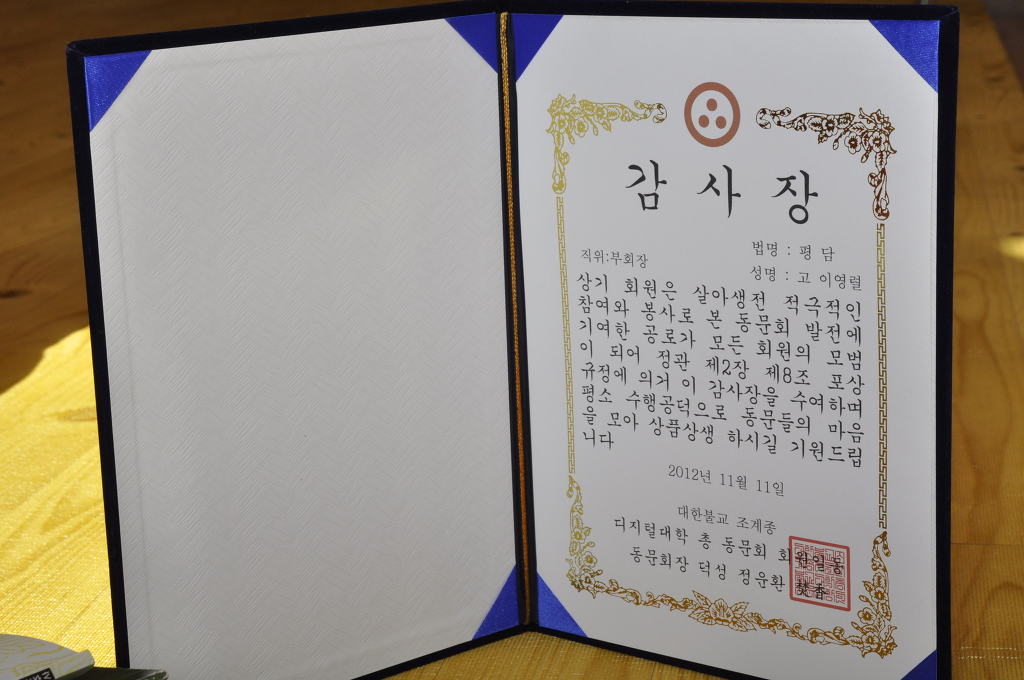 감 사 장
법명 : 평 담
직위:부회장
성명 : 고 이영렬
상기 회원은 살아생전 적극적인
참여와 봉사로 본 동문회 발전에
기여한 공로가 모든 회원의 모범
이 되어 정관 제2장 제8조 포상
규정에 의거 이 감사장을 수여하며
평소 수행공덕으로 동문들의 마음
을 모아 상품상생 하시길 기원드립
니다
2012년 11월 11일
대한불교 조계종
디지털대학 총 동문회 회원일동
동문회장 덕성 정운환 焚香